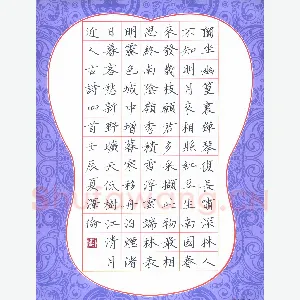 獨坐幽篁裏彈琴復長嘯深林人
不知明月來相照紅豆生南國春
來發幾枝願君多采擷此物最相
思終南陰嶺秀積雪浮雲端林表
明霽色城中增暮寒移舟泊煙渚
日暮客愁新野曠天低樹江清月
近人古詩四首壬辰夏澤倫